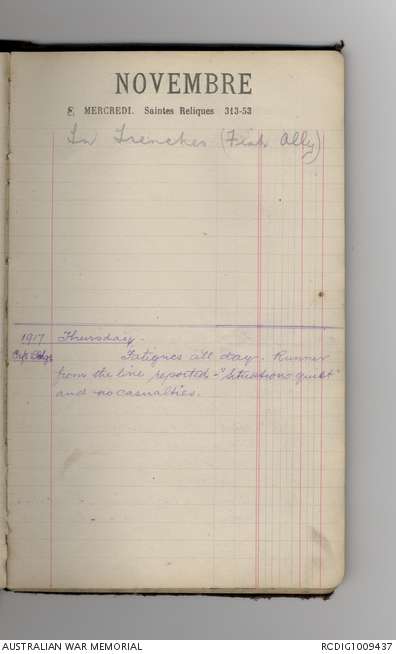 NOVEMBRE
8. MERCREDI. Saintes Reliques 313-53
In Trenches (Fish Ally)
1917 Thursday.
Fatigues all day. Runner
from the line reported - "Situation quiet"
and no casualties.
AUSTRALIAN WAR MEMORIAL
RCDIG1009437